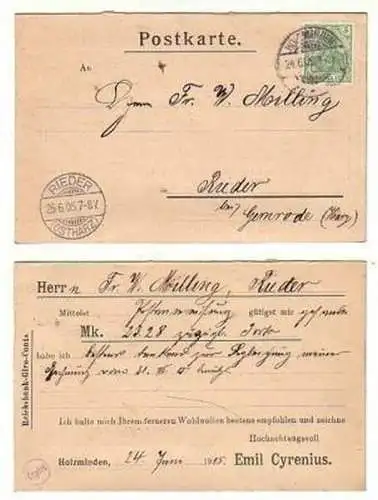 Postkarte.
An
Herrn Fr. W. Milling
Rieder
bei Gernrode (Harz)
RIEDER
25.6.05.7-8V.
(OSTHARZ)
HOLZMINDEN
24.6.05
5
Herrn Fr. W. Milling, Rieder
Mittelst Postanweisung gütigst mir gesandte
Mk. 23.28 zuzügl. Porto
habe ich bestens dankend zur Begleichung meiner
Rechnung vom 31.
Ich halte mich Ihrem ferneren Wohlwollen bestens empfohlen und zeichne
Hochachtungsvoll
Holzminden, 24 Juni 1905. Emil Cyrenius.
Reichsbank-Giro-Conto.